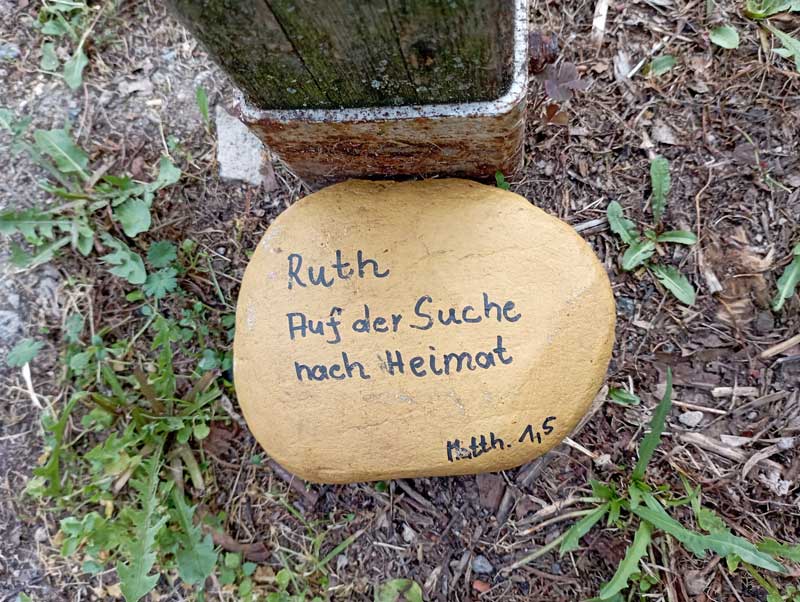 Ruth
Auf der Suche
nach Heimat
Matth. 1,5